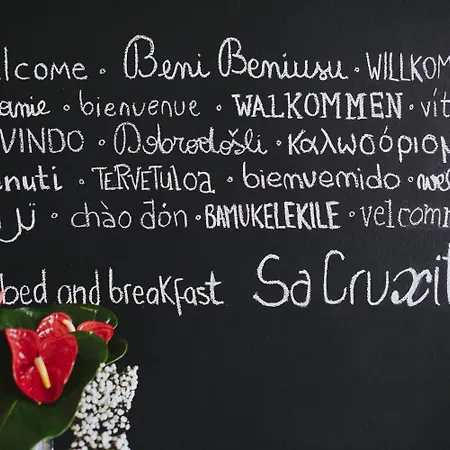 elcome · Beni Beniusu · WILLKOM
anie · bienvenue · WALKOMMEN · vít
VINDO · Dobrodošli · καλωσόρισμ
enuti · TERVETULOA · bienvemido · wes
· chào đón · BAMUKELEKILE · velcomm
bed and breakfast Sa Cruxit